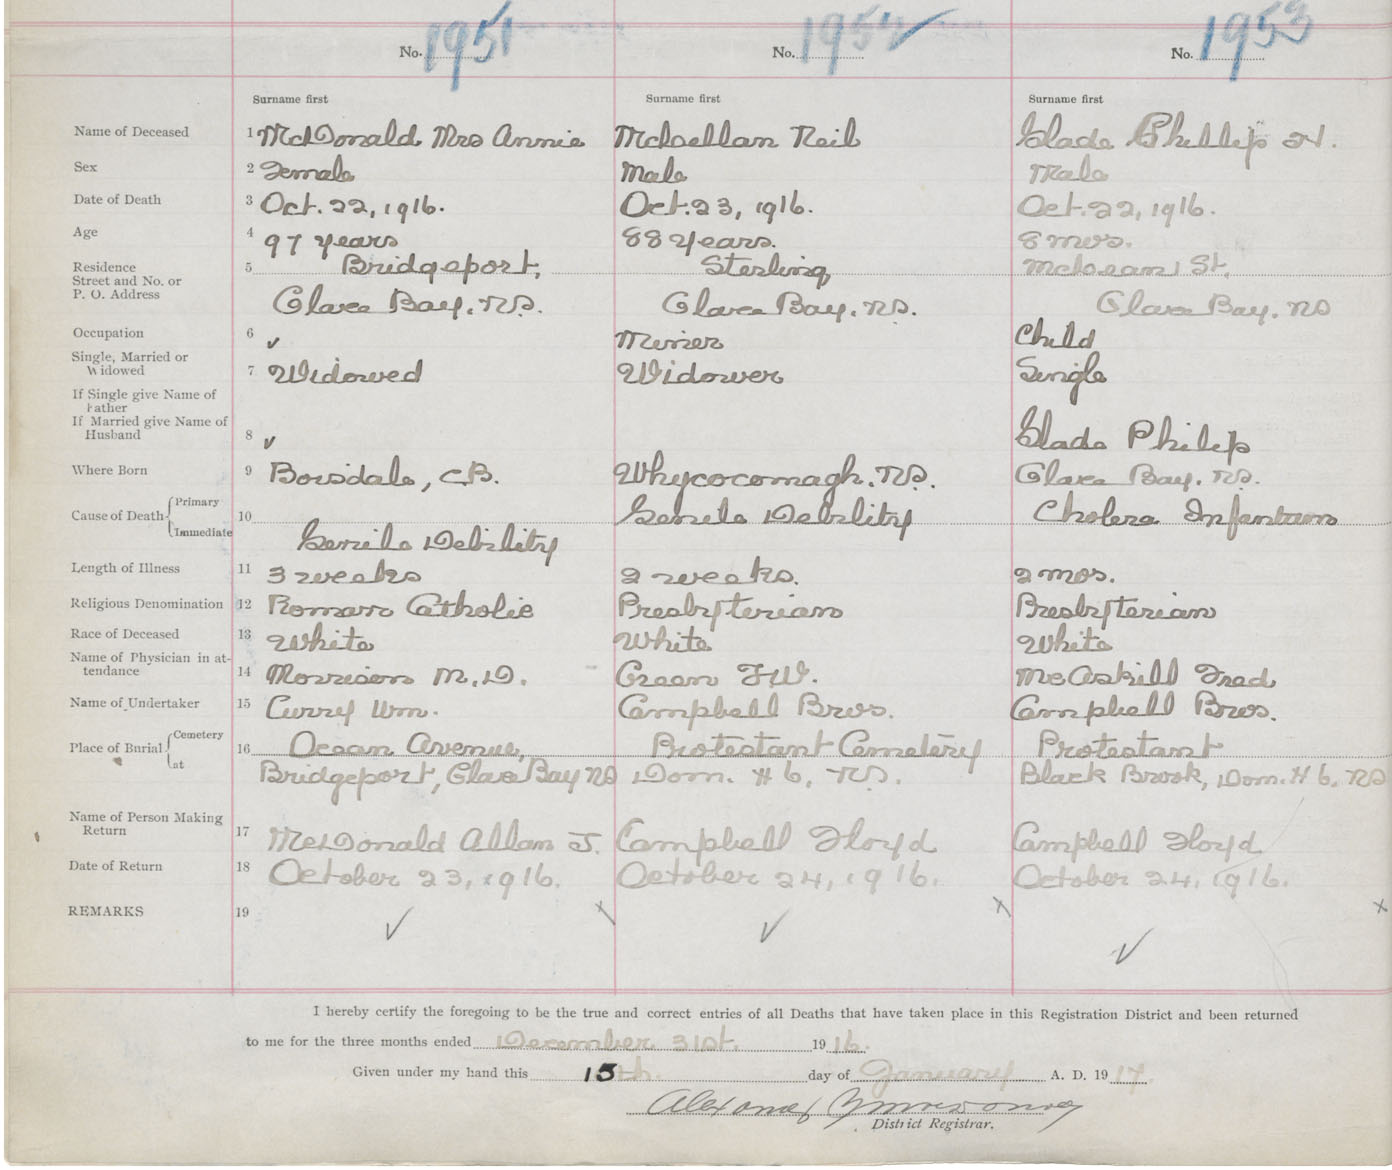 No. 1951 No. 1952 No. 1953
Surname first Surname first Surname first
Name of Deceased 1 McDonald Mrs Annie McLellan Neil Slade Phillip H.
Sex 2 Female Male Male
Date of Death 3 Oct. 22, 1916. Oct. 23, 1916. Oct. 22, 1916.
Age 4 97 years 88 years. 8 mos.
Residence 5 Bridgeport, Sterling McLean St.
Street and No. or
P. O. Address Glace Bay, NS. Glace Bay, NS. Glace Bay, NS
Occupation 6 ✓ Miner Child
Single, Married or
Widowed 7 Widowed Widower Single
If Single give Name of
Father
If Married give Name of
Husband 8 ✓ Slade Philip
Where Born 9 Boisdale, C.B. Whycocomagh, NS. Glace Bay, NS.
Cause of Death Primary 10 Senile Debility Cholera Infantum
Immediate Senile Debility
Length of Illness 11 3 weeks 2 weeks. 2 mos.
Religious Denomination 12 Roman Catholic Presbyterian Presbyterian
Race of Deceased 13 White White White
Name of Physician in at-
tendance 14 Morrison M.D. Green F.W. McAskill Fred
Name of Undertaker 15 Curry Wm. Campbell Bros. Campbell Bros.
Place of Burial Cemetery 16 Ocean Avenue, Protestant Cemetery Protestant
at Bridgeport, Glace Bay NS Dom. # 6, NS. Black Brook, Dom. # 6, NS
Name of Person Making
Return 17 McDonald Allan J. Campbell Floyd Campbell Floyd
Date of Return 18 October 23, 1916. October 24, 1916. October 24, 1916.
REMARKS 19 ✓ x ✓ x ✓ x
I hereby certify the foregoing to be the true and correct entries of all Deaths that have taken place in this Registration District and been returned
to me for the three months ended December 31st. 1916.
Given under my hand this 15th. day of January A. D. 1917.
District Registrar.